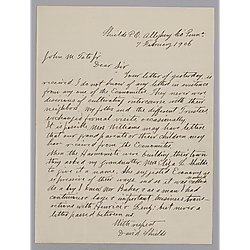 Shields P.O. Allegheny Co Penna.
7 February 1906
John M. Tate Jr
Dear Sir
Your letter of yesterday is
received I do not know of any letter in existence
from any one of the Economites. They never were
desirous of cultivating intercourse with their
neighbors. My folks and the different Trustees
exchanged formal visits occasionally.
It is possible Mrs Williams may have letters
that our grandparents or their children may
have received from the Economites.
When the Harmonists were building their town
they asked my grandmother, Mrs Eliza Shields
to give it a name, she suggested Economy as
expressive of their ways and so it was called
As a boy I knew Mr Baker & as a man I had
continuous large & important business trans-
actions with Henrici & Lenz, but never a
letter passed between us.
With respect
David Shields